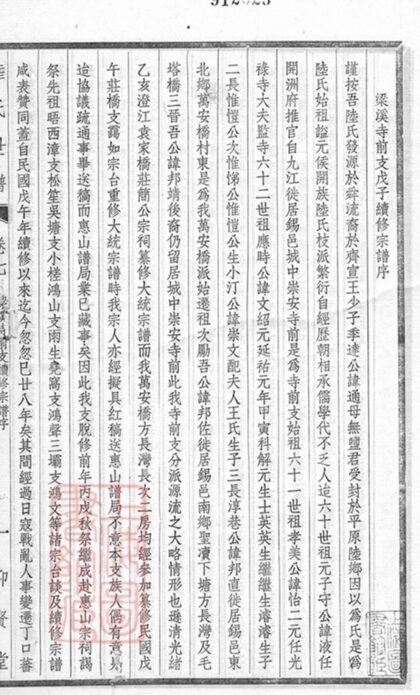 梁溪寺前支戊子續修宗譜序
謹按吾陸氏發源於舜流裔於齊宣王少子季逵公諱通母無鹽君受封於平原陸鄉因以為氏是為
陸氏始祖鎰元侯開族陸氏枝派繁衍自經歷朝相承儒學代不乏人迨六十世祖元子守公諱液任
開洲府推官自九江徙居錫邑城中崇安寺前是為寺前支始祖六十一世祖孝美公諱怡二元任光
祿寺大夫監寺六十二世祖應時公諱文紹元延祐元年甲寅科解元生士英英生繼繼生濬濬生子
二長惟愷公次惟悌公惟愷公生小汀公諱崇文配夫人王氏生子三長淳巷公諱邦直徙居錫邑東
北鄉萬安橋村東是為我萬安橋派始遷祖次勵吾公諱邦佐徙居錫邑南鄉聖瀆下塘方長灣及毛
塔橋三晉吾公諱邦靖後裔仍留居城中崇安寺前此我寺前支分派源流之大略情形也遜清光緒
乙亥澄江袁家橋莊簡公宗祠纂修大統宗譜而我萬安橋方長灣長次二房均經參加纂修民國戊
午莊橋支靄如宗台重修大統宗譜時我宗人亦經擬具紅稿送惠山譜局不意本支族人偶有意見
迨協議疏通事畢送稿而惠山譜局業已藏事矣因此我支脫修前年丙戌秋祭繼成赴惠山宗祠謁
祭先祖晤西漳支松笙吳塘支小槎鴻山支雨生堯窩支鴻聲三壩支鴻文等諸宗台談及續修宗譜
咸表贊同蓋自民國戊午年續修以來迄今忽忽已廿八年矣其間經過日寇戰亂人事變遷丁口蕃
陸氏世譜
卷七
寺前支續修宗譜序
一